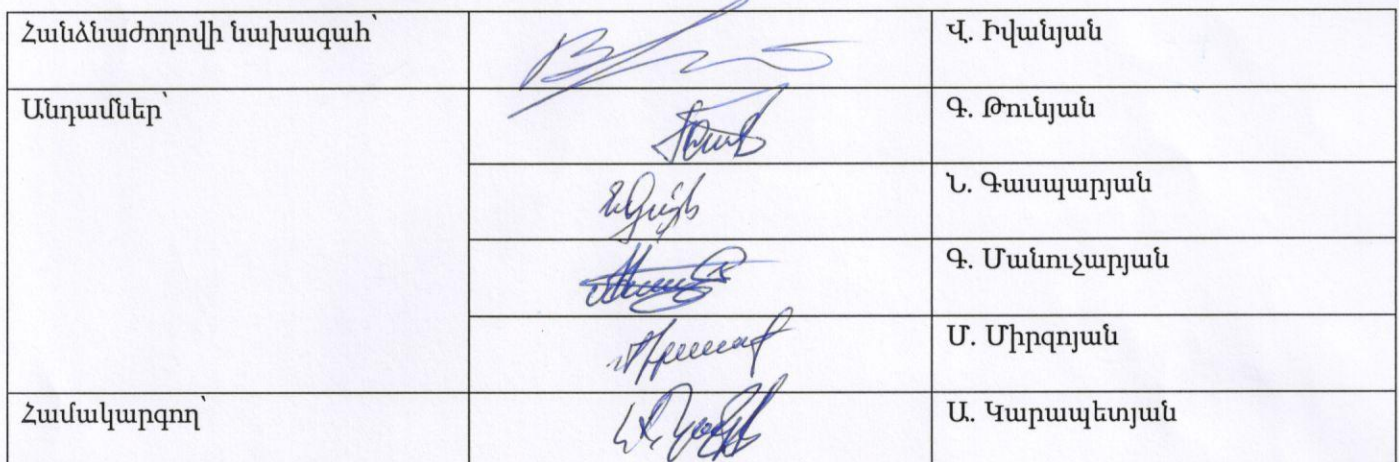 Հանձնաժողովի նախագահ՝ Վ. Իվանյան
Անդամներ՝ Գ. Թունյան
Ն. Գասպարյան
Գ. Մանուչարյան
Մ. Միրզոյան
Համակարգող՝ Ա. Կարապետյան